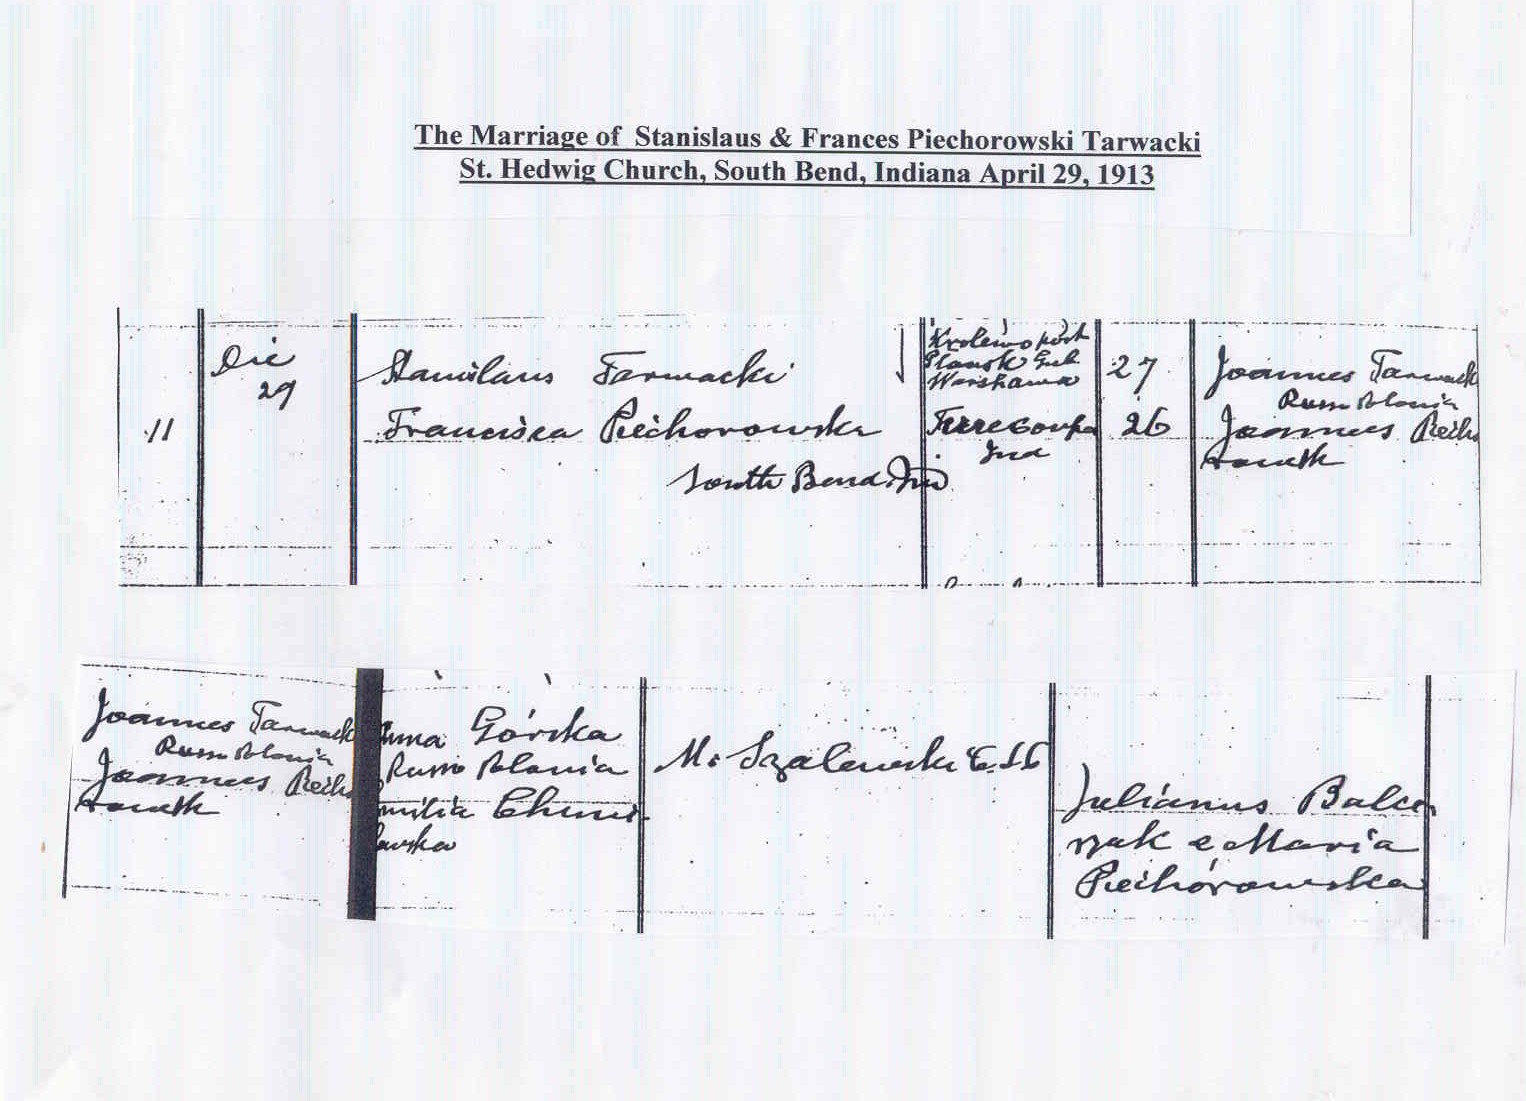 The Marriage of Stanislaus & Frances Piechorowski Tarwacki
St. Hedwig Church, South Bend, Indiana April 29, 1913
Die
29
11
Stanislaus Tarwacki
Francisca Piechorowska
South Bend Ind
Warshawa
Terre Coupe
Ind
27
26
Joannes Tarwack
Russo Polonia
Joannes Piecho
rowsk
Joannes Tarwack
Russo Polonia
Joannes Piecho
rowsk
Anna Górska
Russo Polonia
milia Chmie
lewska
M. Szalewski
Julianus Balce
rzak e Maria
Piechórowska